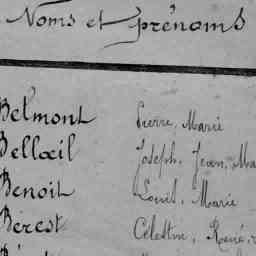 Noms et prénoms
Belmont Pierre, Marie
Bellœil Joseph, Jean, Ma
Benoit Louis, Marie
Bérest Célestin, René,